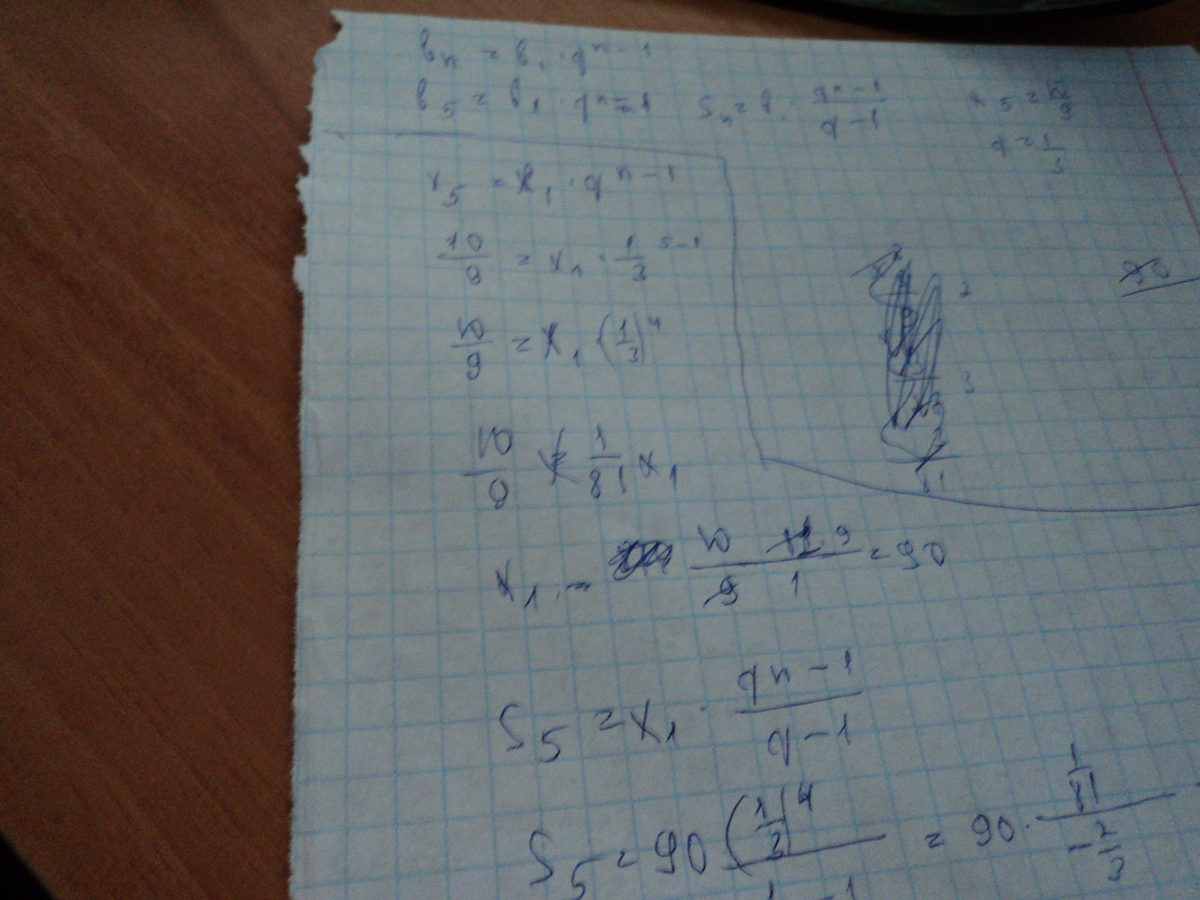 bₙ = b₁ · qⁿ⁻¹
b₅ = b₁ · qⁿ⁼¹
Sₙ = b · (qⁿ - 1)/(q - 1)
x₅ = 10/9
q = 1/3
x₅ = x₁ · qⁿ⁻¹
10/9 = x₁ · 1/3⁵⁻¹
10/9 = x₁ (1/3)⁴
10/9 = 1/81 x₁
x₁ = 10/9 9/1 = 90
S₅ = x₁ · (qⁿ - 1)/(q - 1)
S₅ = 90 (1/3)⁴ = 90 · (1/81)/(-2/3)